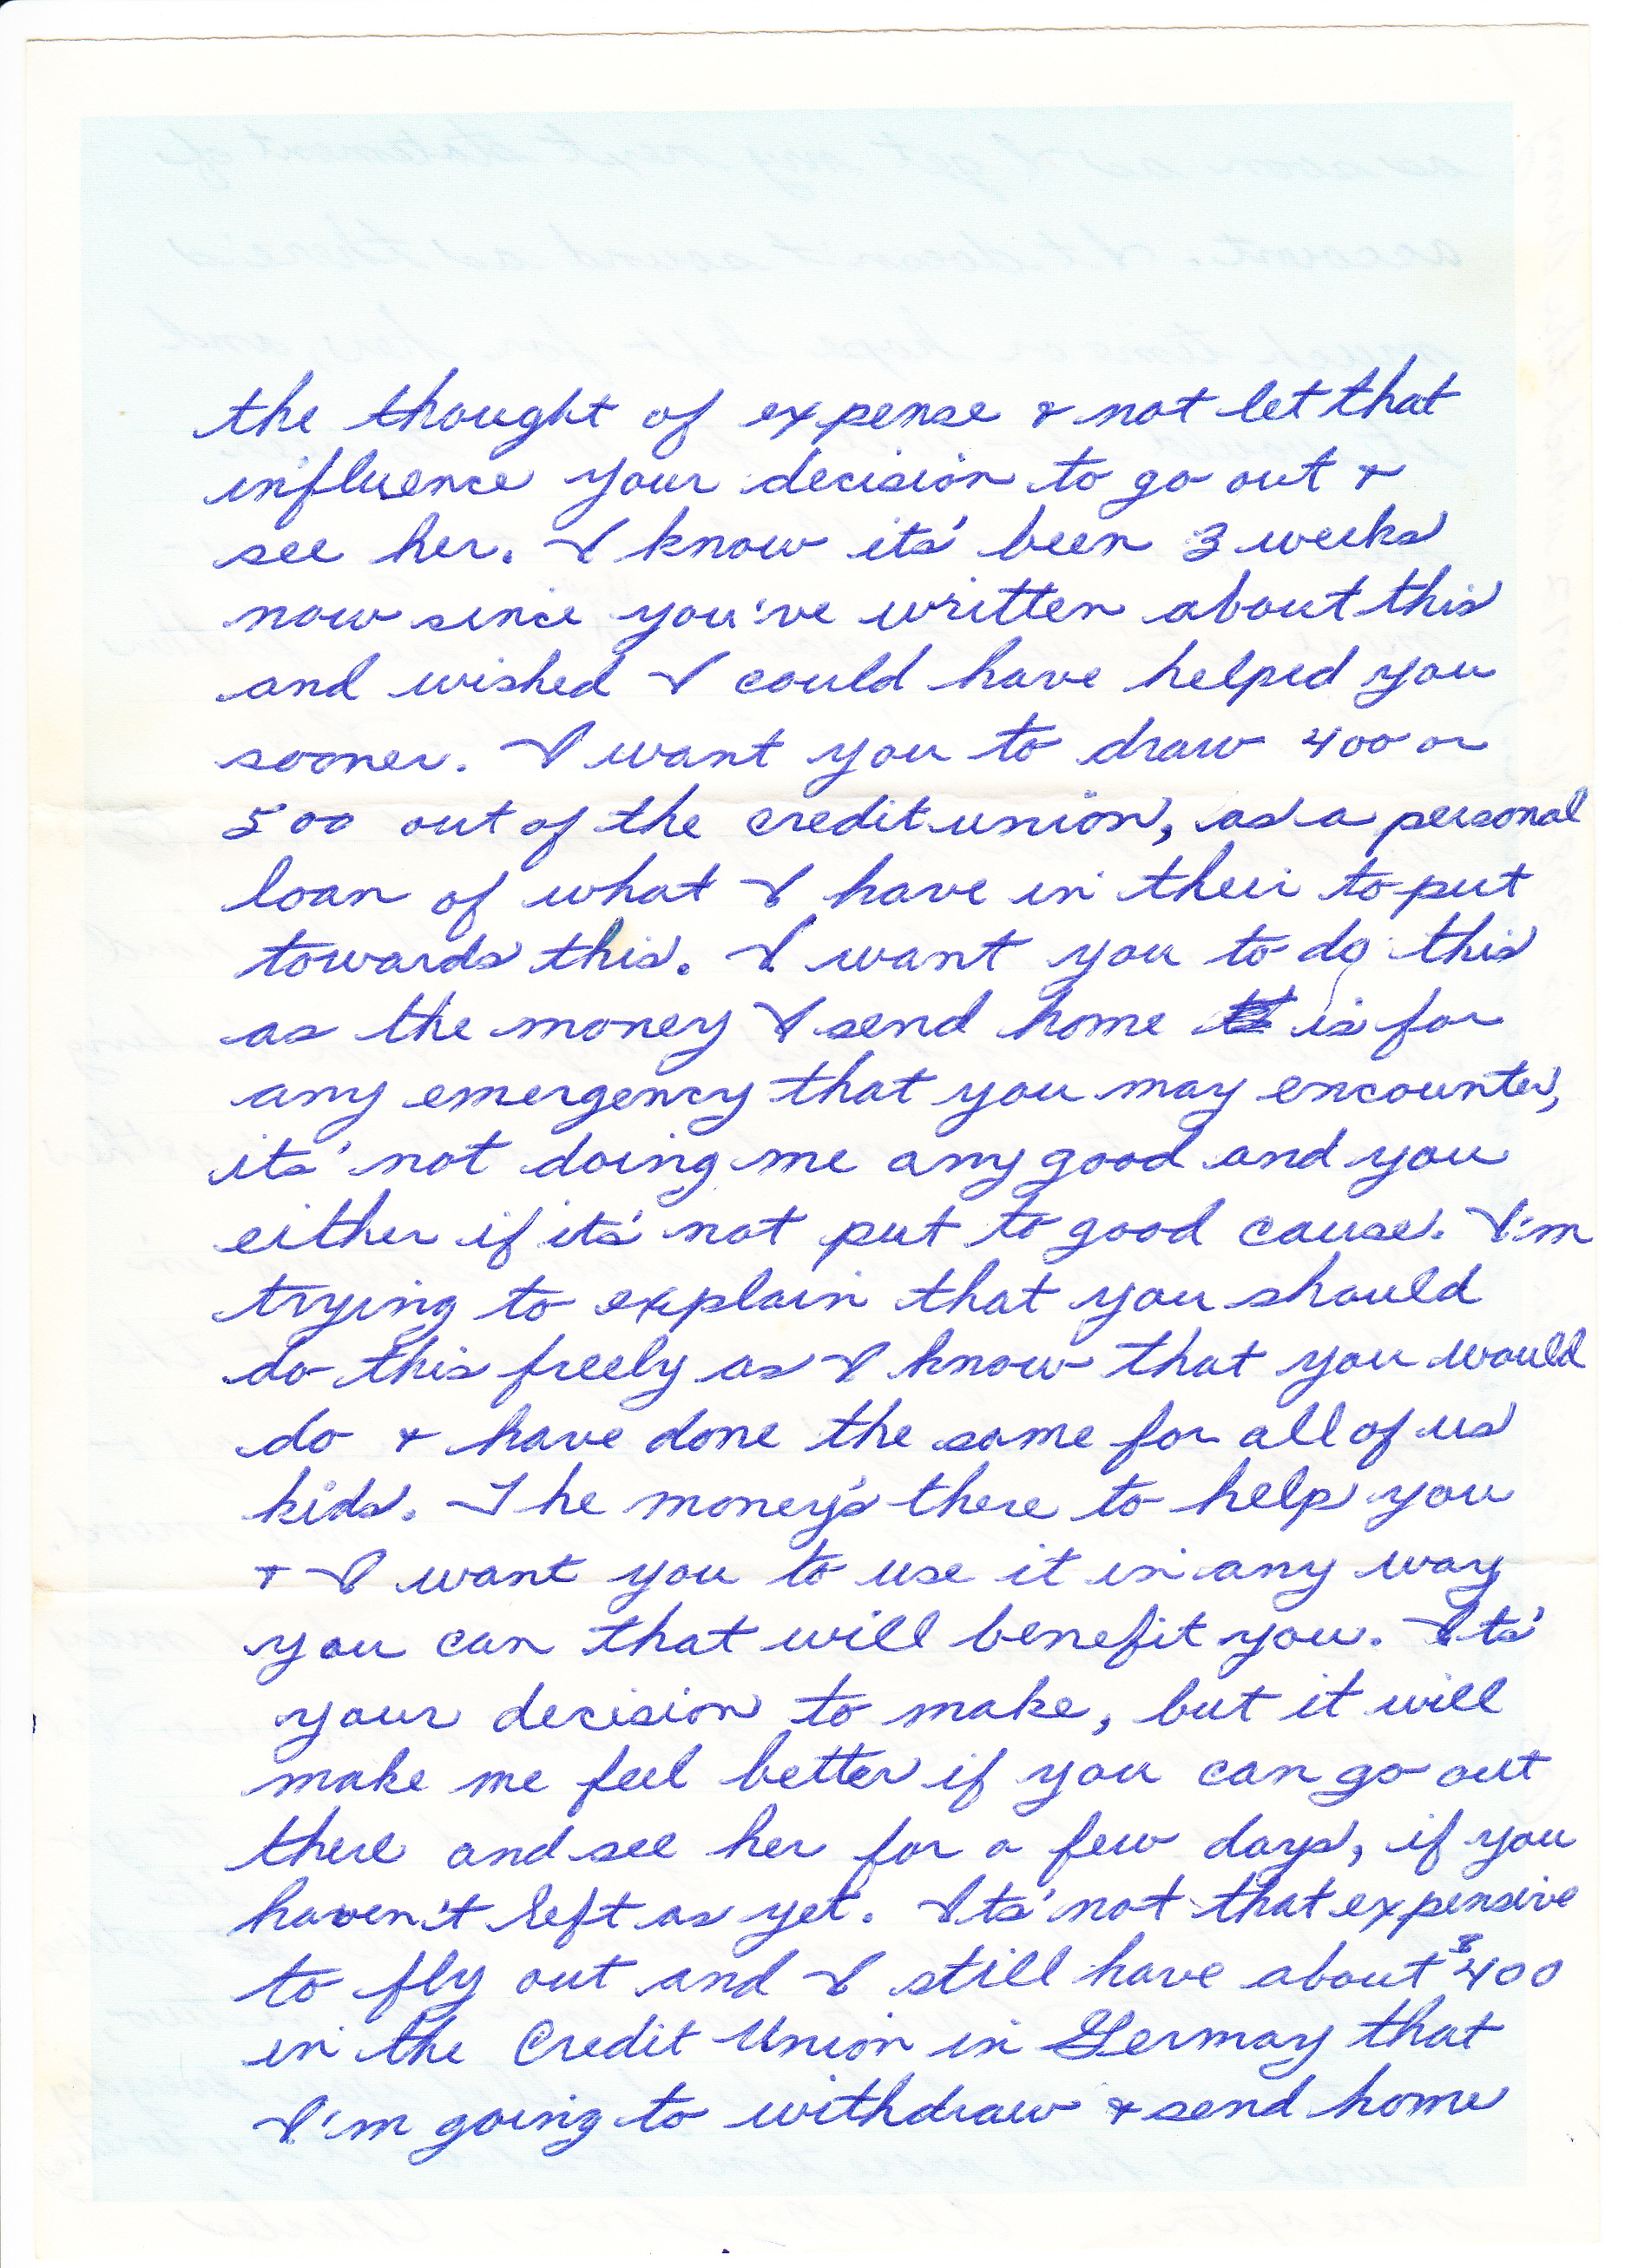 the thought of expense & not let that
influence your decision to go out &
see her. I know its' been 3 weeks
now since you've written about this
and wished I could have helped you
sooner. I want you to draw 400 or
500 out of the credit union, as a personal
loan of what I have in their to put
towards this. I want you to do this
as the money I send home is for
any emergency that you may encounter,
its' not doing me any good and you
either if its' not put to good cause. I'm
trying to explain that you should
do this freely as I know that you would
do & have done the same for all of us
kids. The money's there to help you
& I want you to use it in any way
you can that will benefit you. Its'
your decision to make, but it will
make me feel better if you can go out
there and see her for a few days, if you
haven't left as yet. Its' not that expensive
to fly out and I still have about $400
in the Credit Union in Germay that
I'm going to withdraw & send home